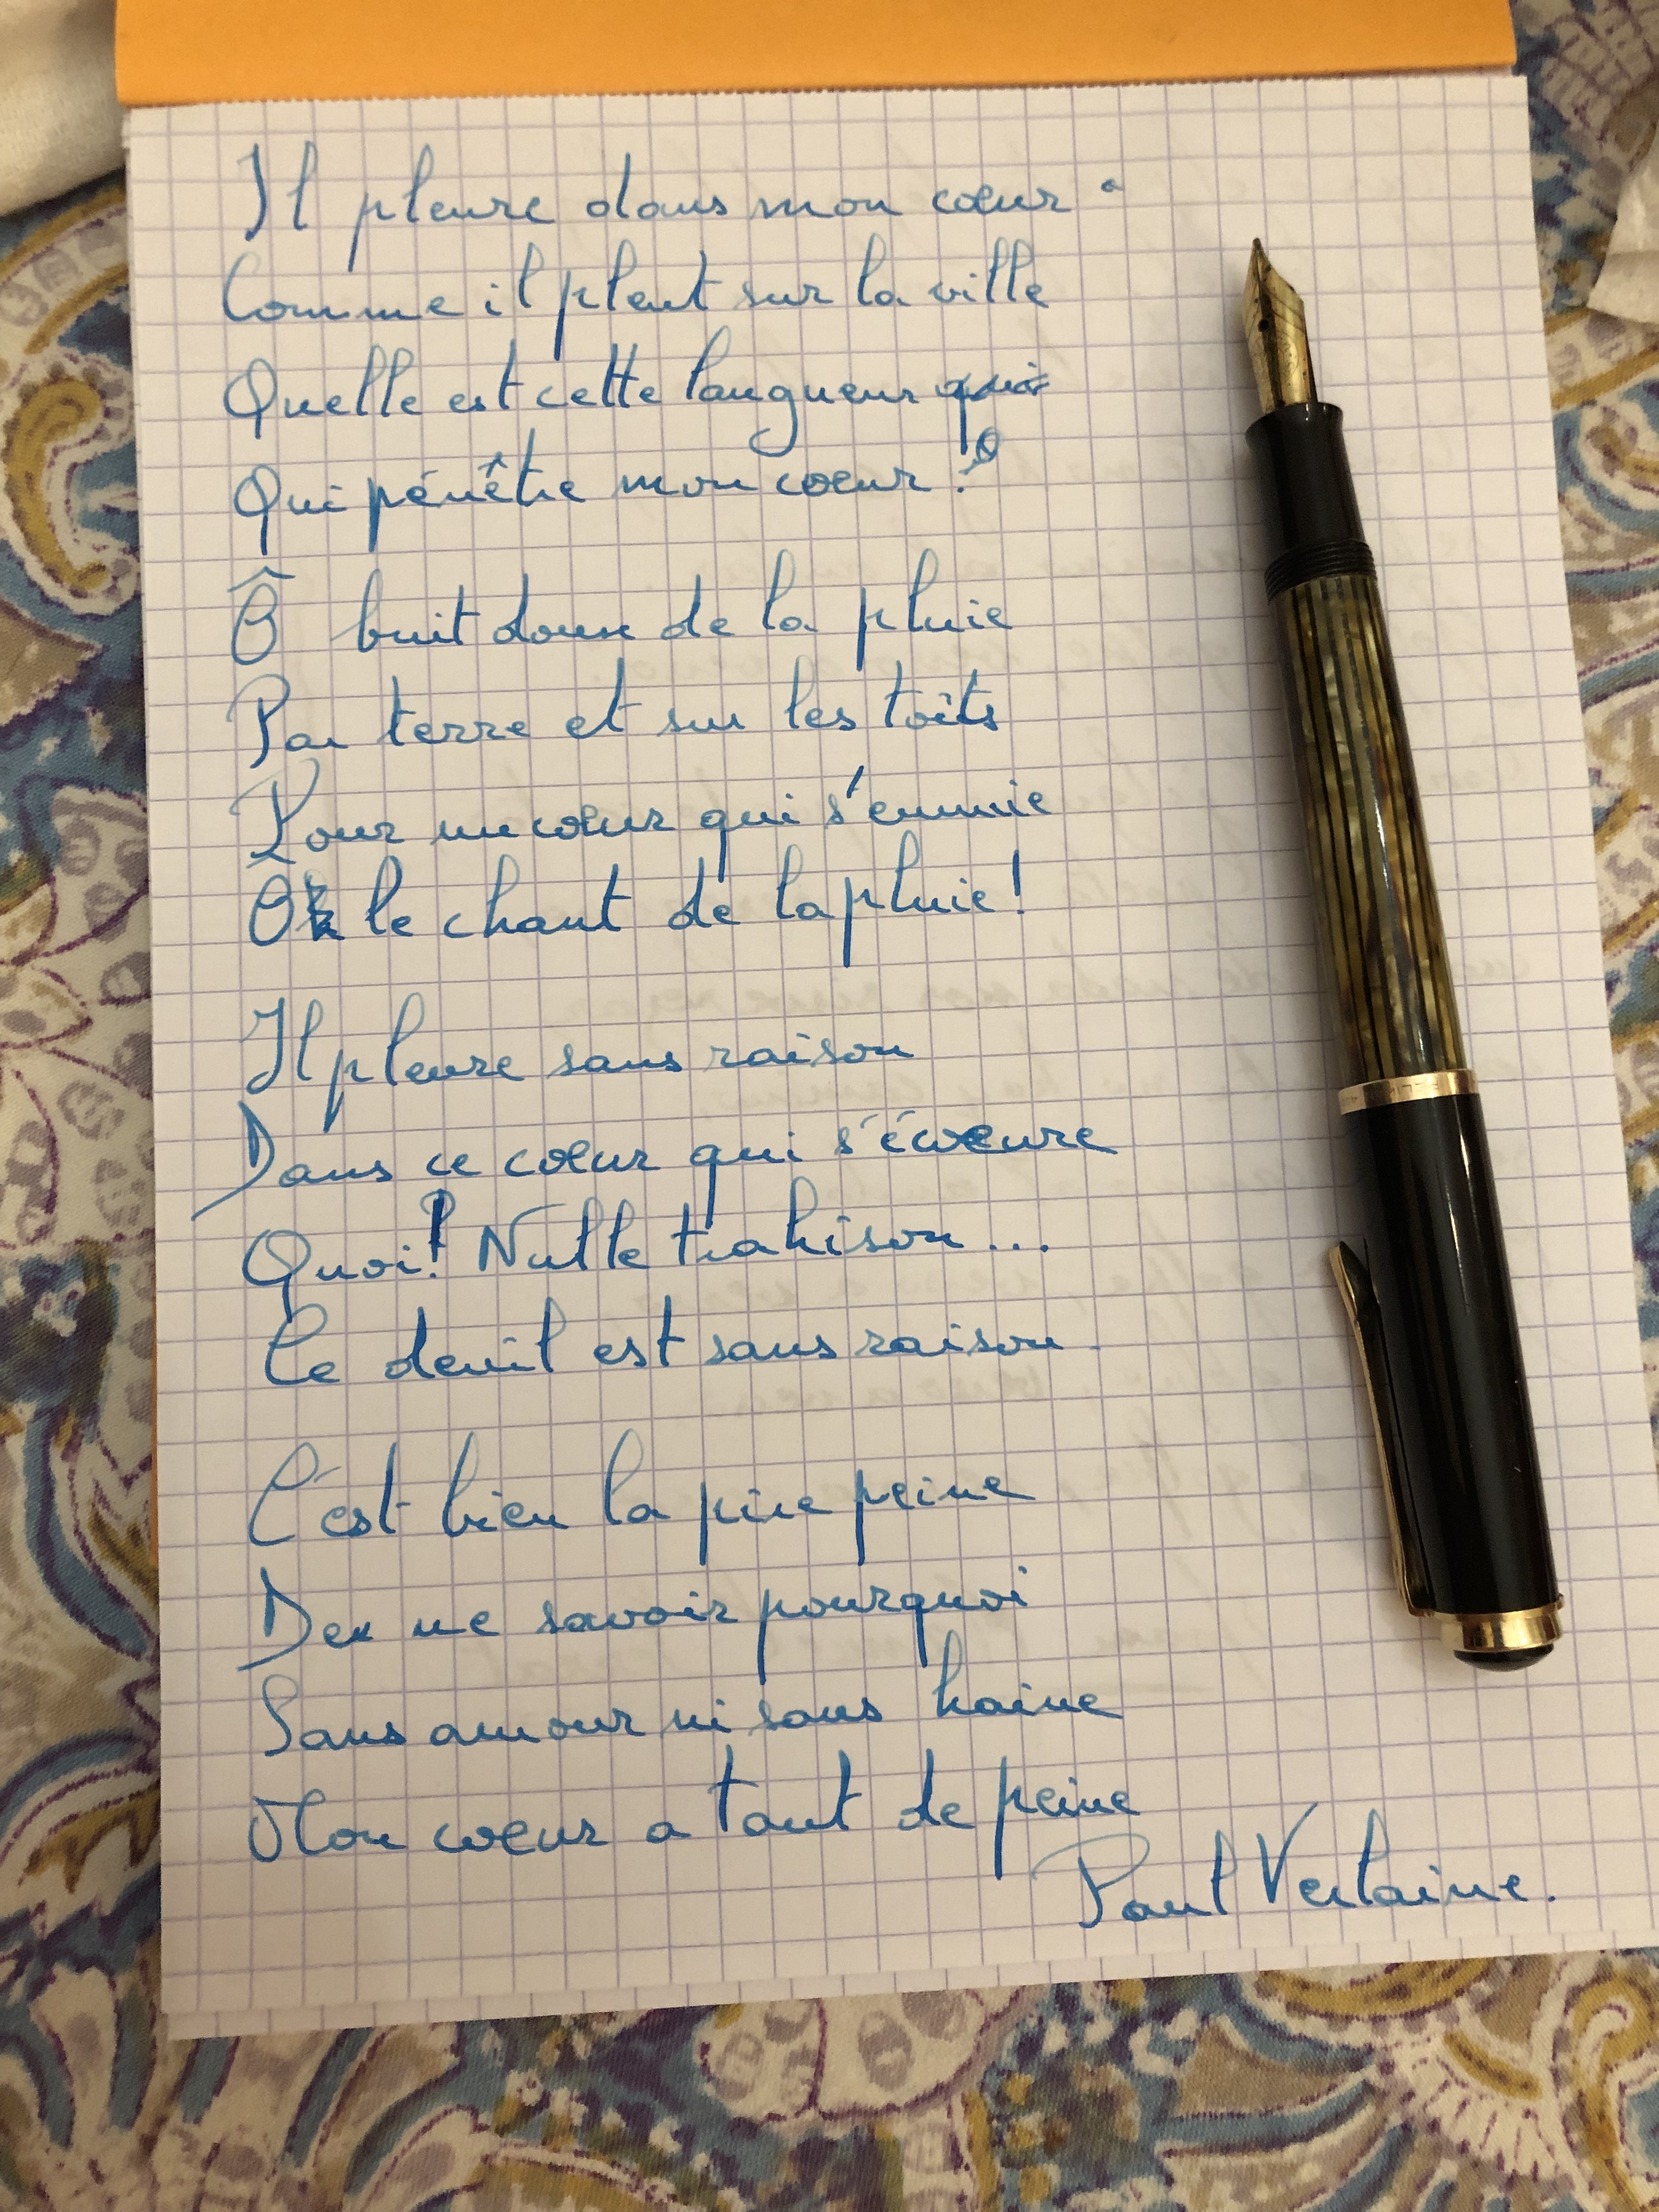 Il pleure dans mon cœur
Comme il pleut sur la ville
Quelle est cette langueur qui
Qui pénêtre mon cœur ?
Ô buit doux de la pluie
Par terre et sur les toits
Pour un cœur qui s'ennuie
Ô le chant de la pluie !
Il pleure sans raison
Dans ce cœur qui s'écœure
Quoi ! Nulle trahison ...
Ce deuil est sans raison.
C'est bien la pire peine
De ne savoir pourquoi
Sans amour ni sans haine
Mon cœur a tant de peine
Paul Verlaine.